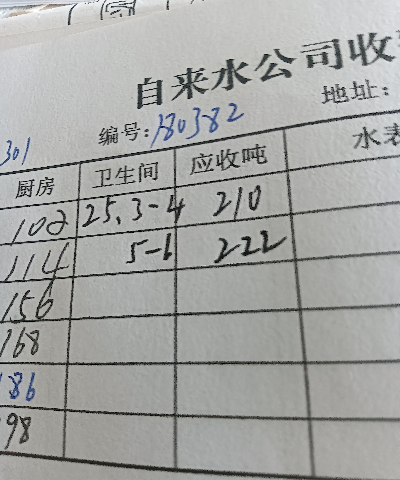 自来水公司收
编号:180382 地址:
301
厨房 卫生间 应收吨 水表
102 25.3-4 210
114 5-6 222
156
168
186
98